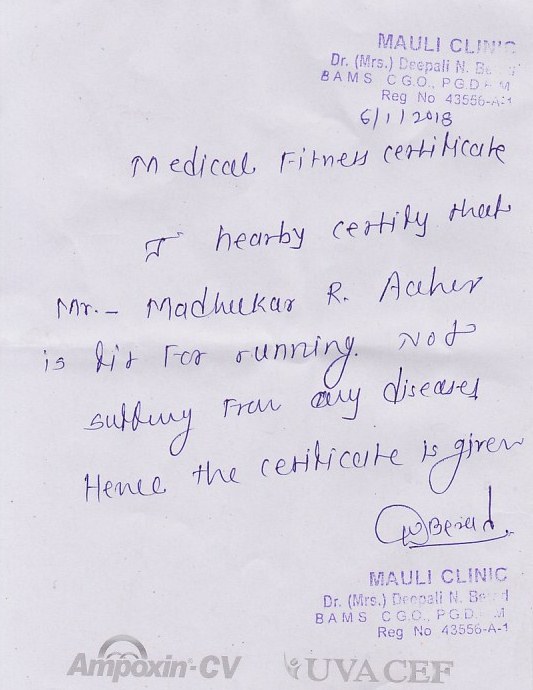 MAULI CLINIC
Dr. (Mrs.) Deepali N.
BAMS C.G.O., PGD M
Reg No 43556-A-1
6/1/2018
Medical Fitness certificate
I hearby certify that
Mr. - Madhukar R. Aaher
is fit For running. Not
suffring From any diseases
Hence the certificate is given
Berad.
MAULI CLINIC
Dr. (Mrs.) Deepali N.
BAMS C.G.O., PGD M
Reg No 43556-A-1
Ampoxin-CV UVACEF